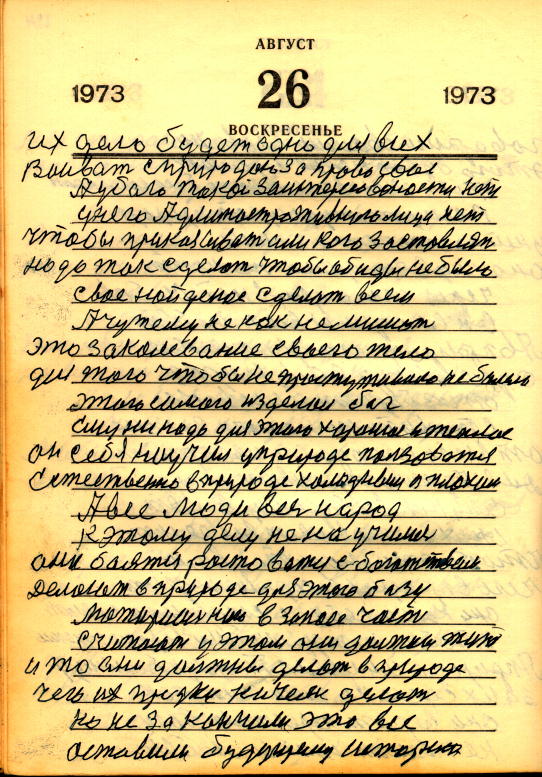 АВГУСТ
1973 26 1973
ВОСКРЕСЕНЬЕ
их дело будет одно для всех
Воиват с природою за право свае
А у бога такой заинтересованости нет
у него Администротивнило лица нет
чтобы приказыват или кого заставлят
надо так сделат чтобы обиды не было
свое найденое сделат всем
А чужему не как не мишат
это закалевание своего тело
для этого чтобы не простуживало не болело
этого самого изделал бог
ему ни надо для этого хорошое и теплое
он себя научил у природе ползоватся
Естественно в природе холодным и плохим
А все люди весь народ
к этому делу не научился
они боятся роставатся с богатством
делоют в природе для этого базу
в запасе част
считают у этом они должны жит
и то они должны делат в природе
чего их предки начели делат
но не закончили это все
оставили будущему история